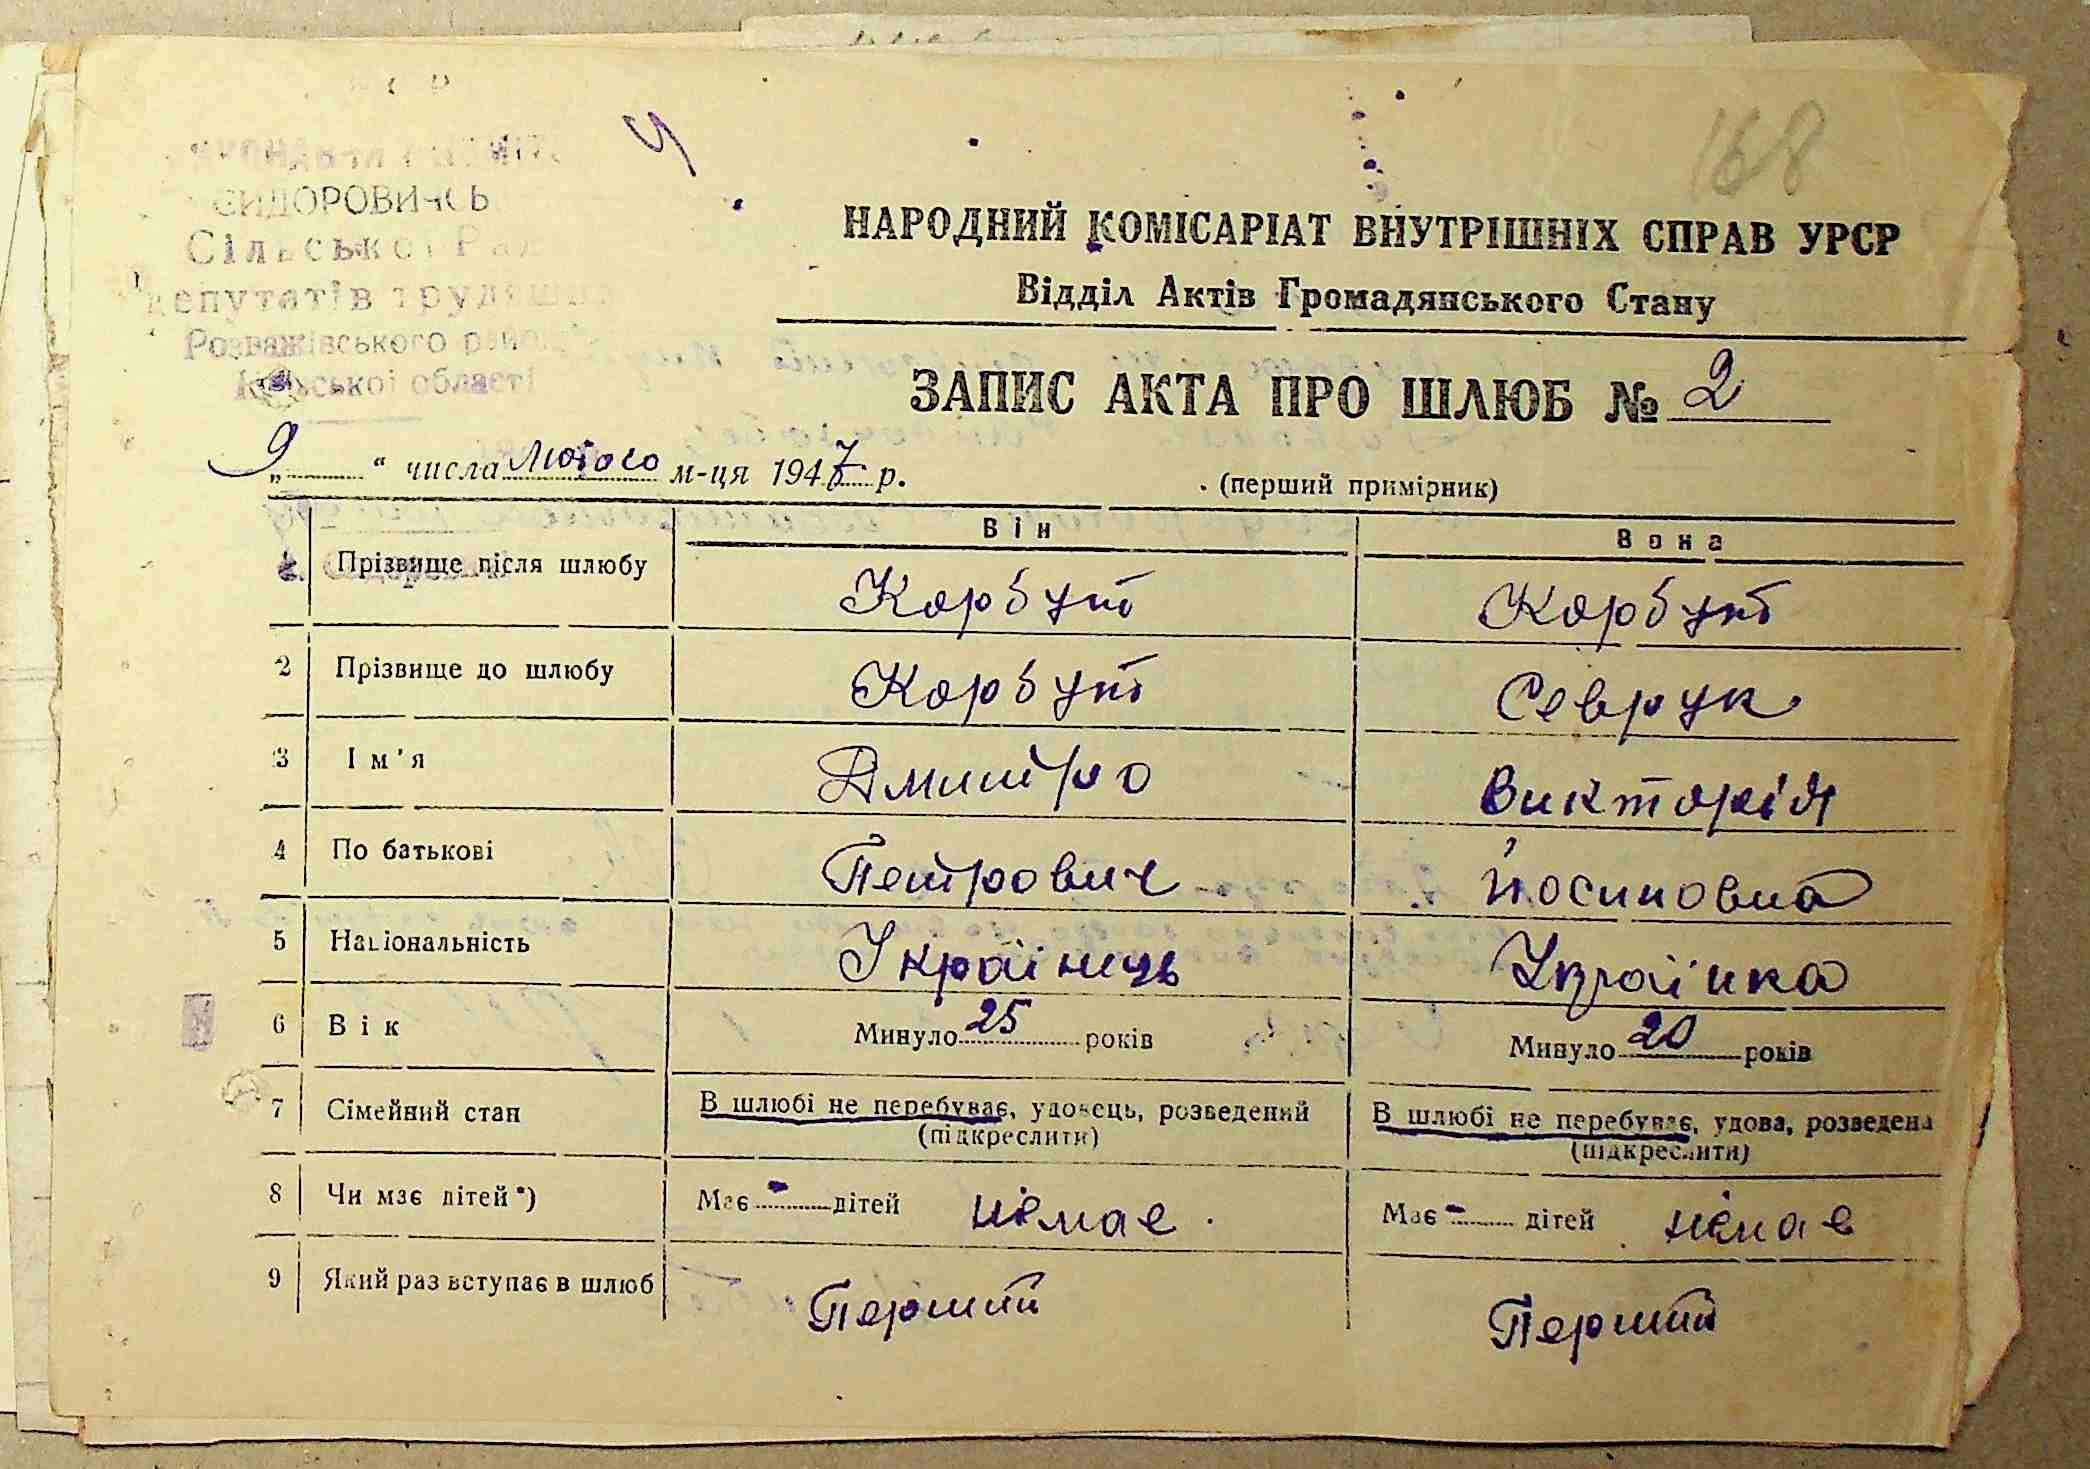 168
СИДОРОВИЧСЬ
Сільської Рад
депутатів трудящих
Розважівського району
Київської області
НАРОДНИЙ КОМІСАРІАТ ВНУТРІШНІХ СПРАВ УРСР
Відділ Актів Громадянського Стану
ЗАПИС АКТА ПРО ШЛЮБ № 2
„9“ числа Лютого м-ця 1947 р.
(перший примірник)
Він Вона
1 Прізвище після шлюбу Корбут Корбут
2 Прізвище до шлюбу Корбут Севрук
3 Ім'я Дмитро Викторія
4 По батькові Петрович Йосиповна
5 Національність Українець Українка
6 Вік Минуло 25 років Минуло 20 років
7 Сімейний стан В шлюбі не перебуває, удовець, розведений В шлюбі не перебуває, удова, розведена
(підкреслити) (підкреслити)
8 Чи має дітей*) Має - дітей німає. Має - дітей німає
9 Який раз вступає в шлюб Перший Перший